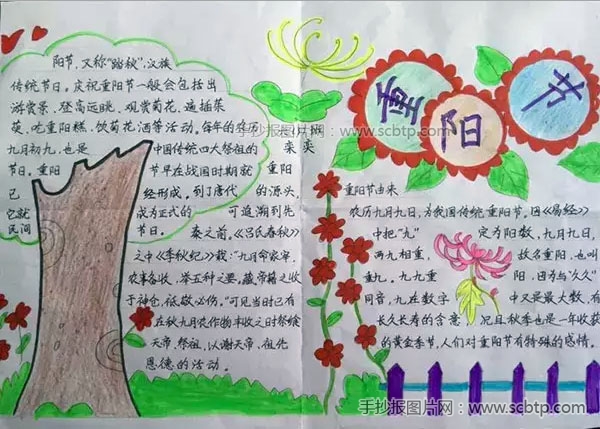 重阳节
阳节,又称"踏秋",汉族
传统节日。庆祝重阳节一般会包括出
游赏景、登高远眺、观赏菊花、遍插茱
萸、吃重阳糕、饮菊花酒等活动。每年的农历
九月初九,也是 中国传统四大祭祖的
节日。重阳 节早在战国时期就
已 经形成,到了唐代
它就 成为正式的
民间 节日。
重阳 的源头,
可追溯到先
秦之前。《吕氏春秋》
之中《季秋纪》载:"九月命家宰,
农事备收,举五种之要。藏帝籍之收
于神仓,祗敬必饬。"可见当时已有
在秋九月农作物丰收之时祭飨
天帝、祭祖,以谢天帝、祖先
恩德的活动。
重阳节由来
农历九月九日,为我国传统重阳节。因《易经》
中把"九" 定为阳数,九月九日,
两九相重, 故名重阳,也叫
重九。九九重 阳,因为与"久久"
同音,九在数字 中又是最大数,有
长久长寿的含意 况且秋季也是一年收获
的黄金季节,人们对重阳节有特殊的感情。
手抄报图片网:www.scbtp.com
手抄报图片网:www.scbtp.com